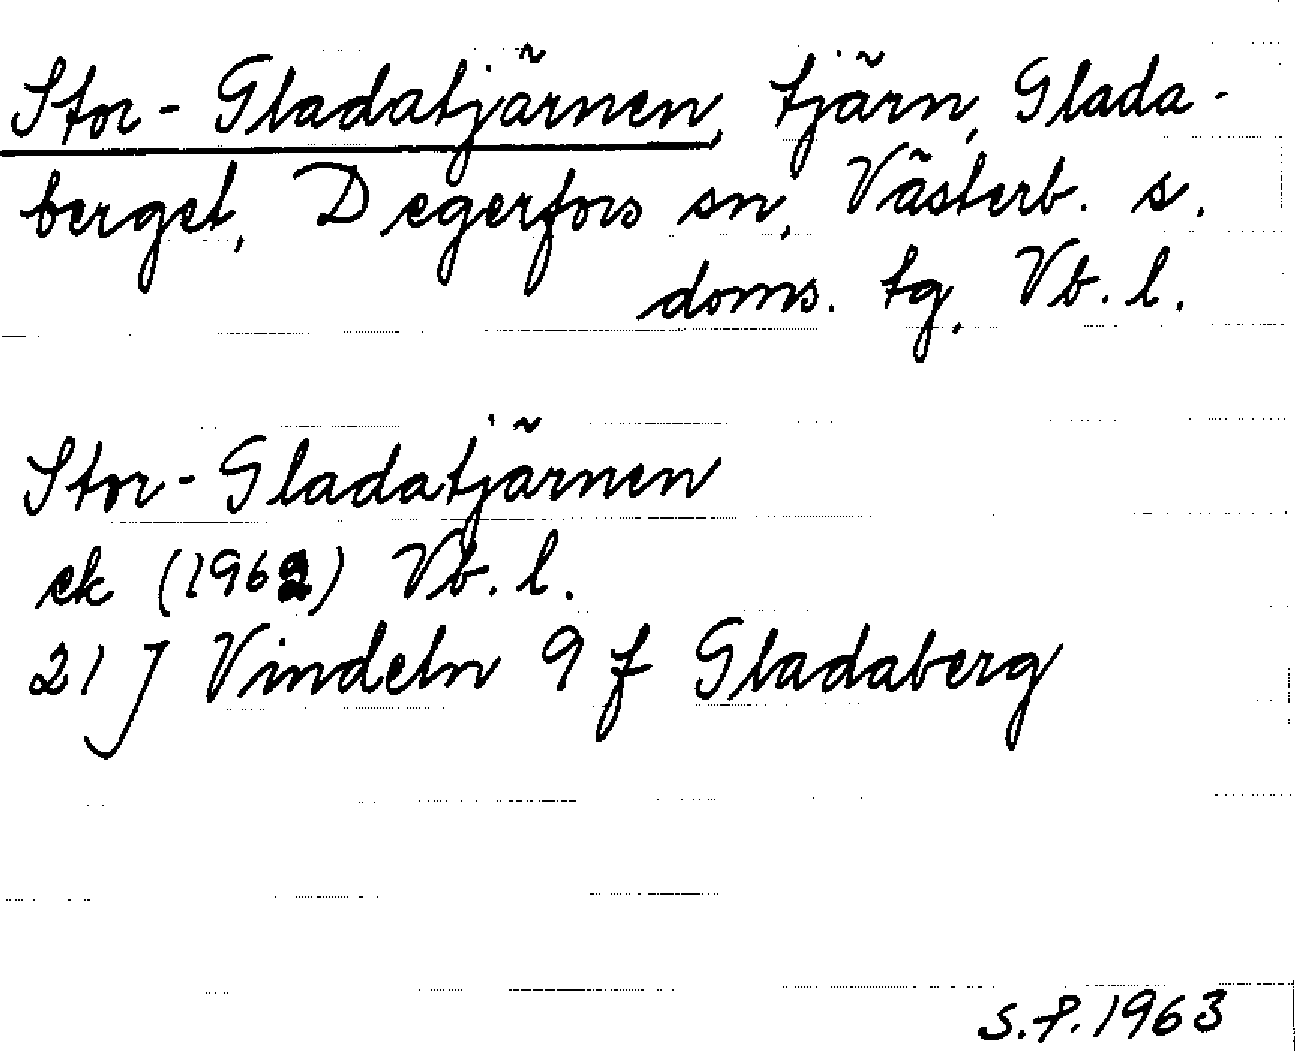 Stor-Gladatjärnen, tjärn, Glada-
berget, Degerfors sn, Västerb. s.
doms. tg, Vb. l.
Stor-Gladatjärnen
ek (1962) Vb. l.
21 J Vindeln 9 f Gladaberg
S.F. 1963